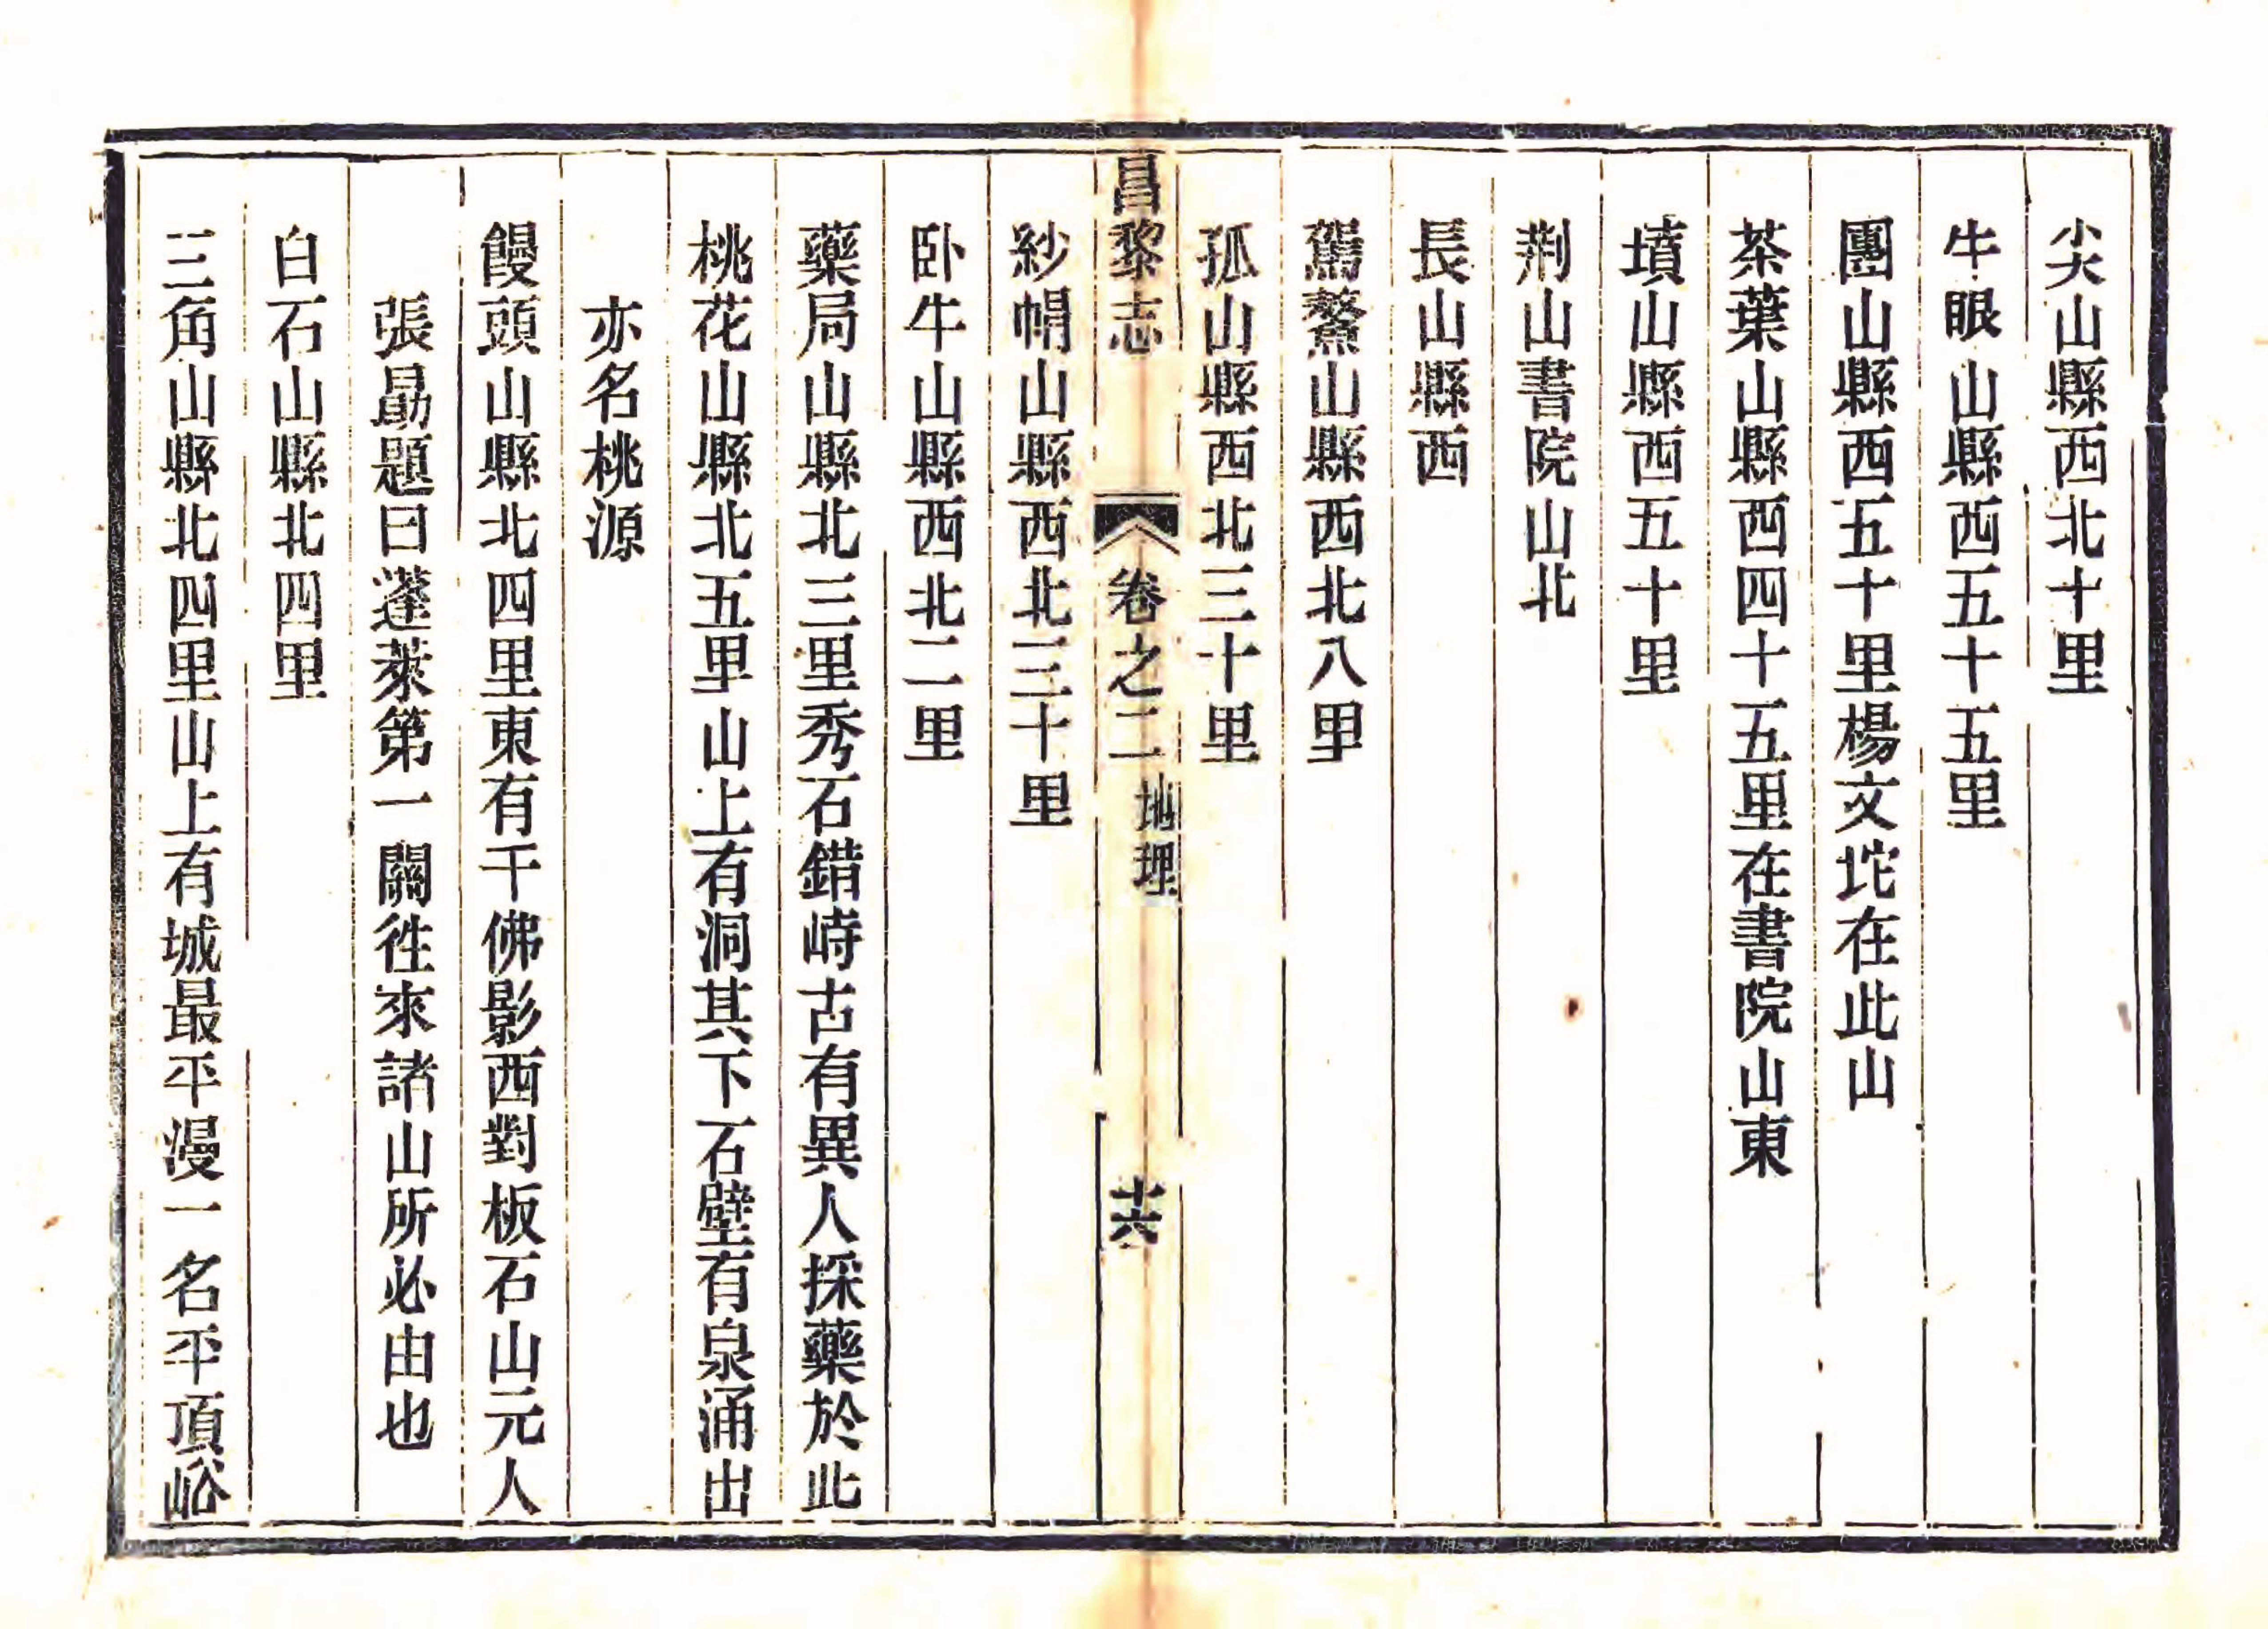 尖山縣西北十里
牛眼山縣西五十五里
團山縣西五十里楊文坨在此山
茶葉山縣西四十五里在書院山東
墳山縣西五十里
荆山書院山北
長山縣西
駕鰲山縣西北八里
孤山縣西北三十里
昌黎志 卷之二 地理 十六
紗帽山縣西北三十里
卧牛山縣西北二里
藥局山縣北三里秀石錯峙古有異人採藥於此
桃花山縣北五里山上有洞其下石壁有泉涌出
亦名桃源
饅頭山縣北四里東有千佛影西對板石山元人
張勗題曰蓬萊第一關徃來諸山所必由也
白石山縣北四里
三角山縣北四里山上有城最平漫一名平頂峪